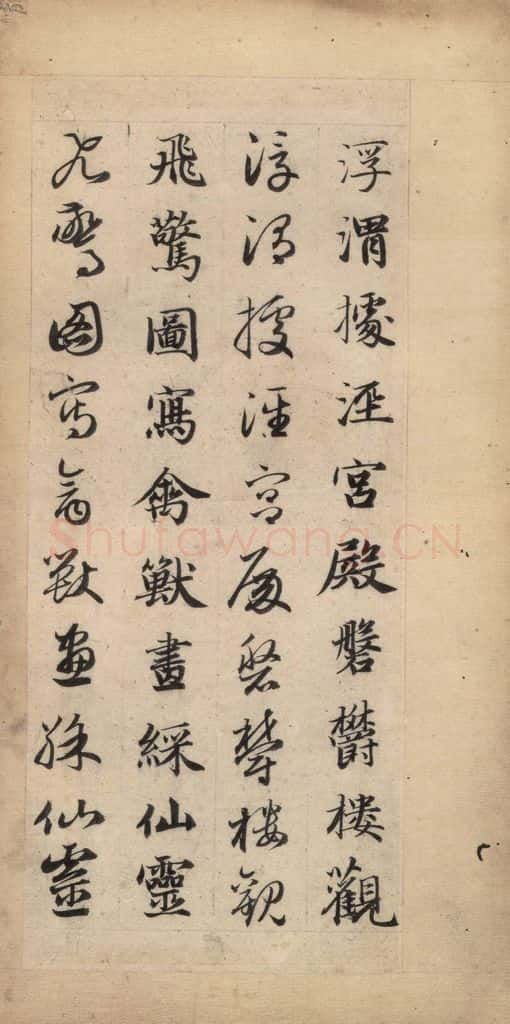 浮渭據泾宮殿磐欝楼觀
浮渭據泾宮殿磐欝楼觀
飛驚圖寫禽獸畫綵仙靈
飛驚圖寫禽獸畫綵仙靈
Shufawang.CN